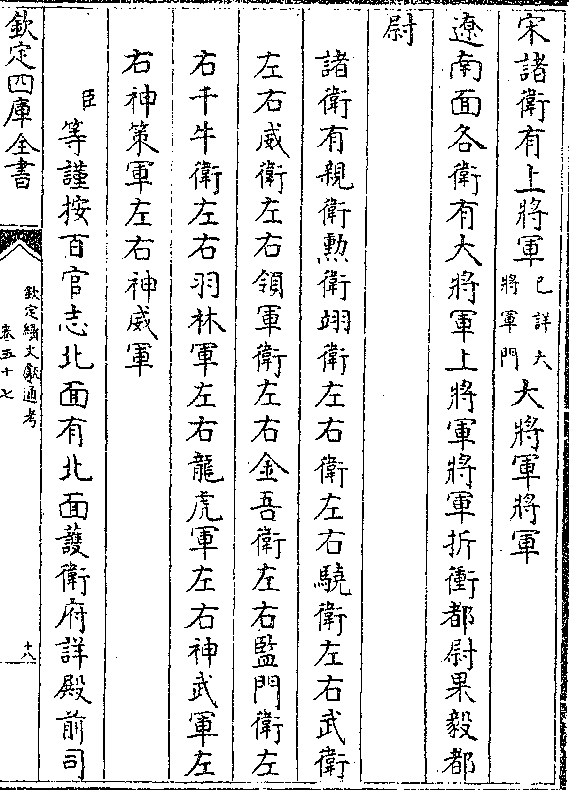 宋諸衛有上將軍已詳大將軍門大將軍將軍
遼南面各衛有大將軍上將軍將軍折衝都尉果毅都
尉
諸衛有親衛勲衛翊衛左右衛左右驍衛左右武衛
左右威衛左右領軍衛左右金吾衛左右監門衛左
右千牛衛左右羽林軍左右龍虎軍左右神武軍左
右神策軍左右神威軍
臣等謹按百官志北面有北面護衛府詳殿前司
欽定四庫全書
欽定續文獻通考
卷五十七
十八